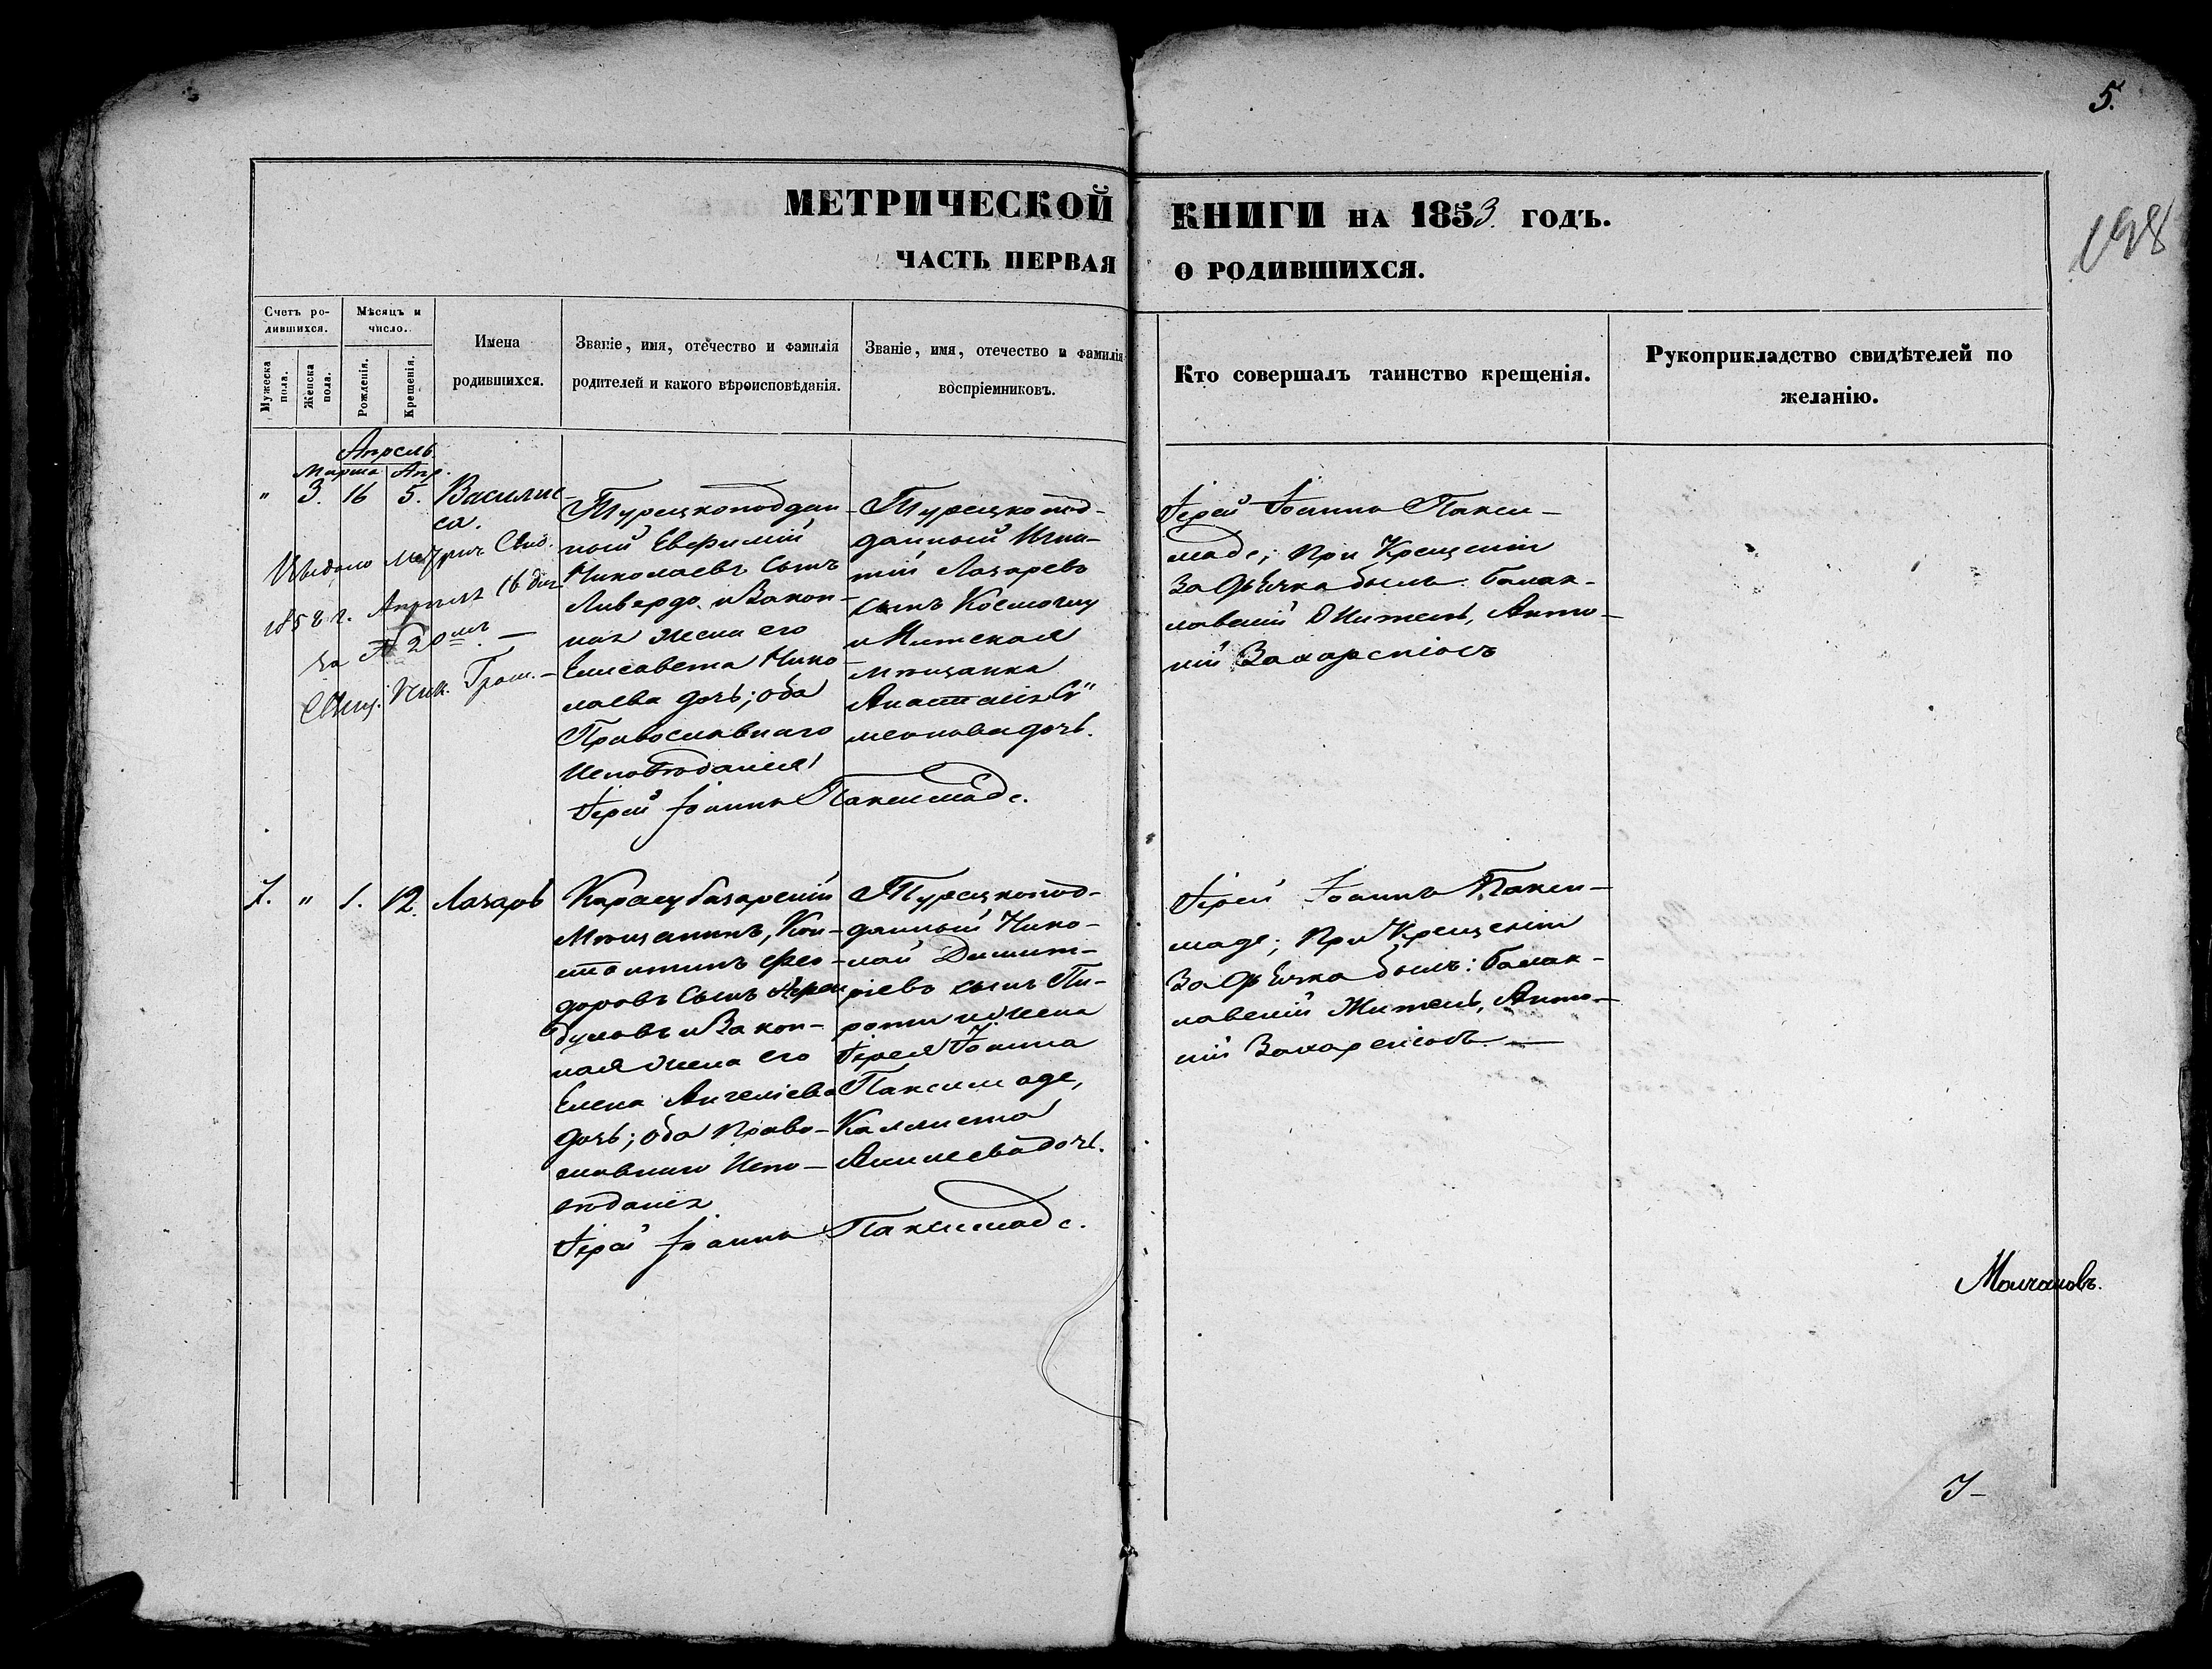 5.
МЕТРИЧЕСКОЙ КНИГИ НА 1853. ГОДЪ.
198
ЧАСТЬ ПЕРВАЯ О РОДИВШИХСЯ.
Счетъ ро-
дившихся.
Мужеска
пола.
Женска
пола.
Мѣсяцъ и
число.
Рожденія.
Крещенія.
Имена
родившихся.
Званіе, имя, отечество и фамилія
родителей и какого вѣроисповѣданія.
Званіе, имя, отечество и фамилія
воспріемниковъ.
Кто совершалъ таинство крещенія.
Рукоприкладство свидѣтелей по
желанію.
Апрель
Марта Апр.
" 3. 16 5. Василис-
са.
Выдано Метрич. Свид.
1858 г. Апрѣля 16 дня
за № 20мъ —
Свящ. Ник.
Турецкоподдан-
ный Евфимій
Николаевъ Сынъ
Ливердо и Закон-
ная жена его
Елисавета Нико-
лаева дочь; оба
Православнаго
Исповѣданія
Іерей Іоаннъ Паксимаде.
Турецкопод-
данный Игна-
тій Лазаревъ
сынъ
и Ялтская
мѣщанка
Анастасія Си"
меонова дочь.
Іерей Іоаннъ Пакси-
маде; при Крещеніи
За Дьячка былъ: Балак-
лавскій Житель, Анто-
ній
7. " 1. 12. Лазарь
Карасубазарскій
Мѣщанинъ, Кон-
стантинъ Фео-
доровъ Сынъ
и Закон-
ная жена его
Елена Ангеліева
дочь; оба Право-
славнаго Испо-
вѣданія
Іерей Іоаннъ Паксимаде.
Турецкопод-
данный Нико-
лай Димит-
ріевъ сынъ Пи-
роти и жена
Іерея Іоанна
Паксимаде,
Каллиста
дочь.
Іерей Іоаннъ Пакси-
маде; при Крещеніи
За Дьячка былъ: Балак-
лавскій Житель, Анто-
ній —
Молчановъ.